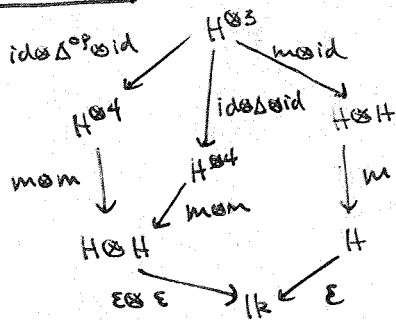 H⊗3
id⊗Δop⊗id
m⊗id
H⊗4
id⊗Δ⊗id
H⊗H
m⊗m
H⊗4
m
m⊗m
H⊗H
H
ε⊗ε
𝕜
ε